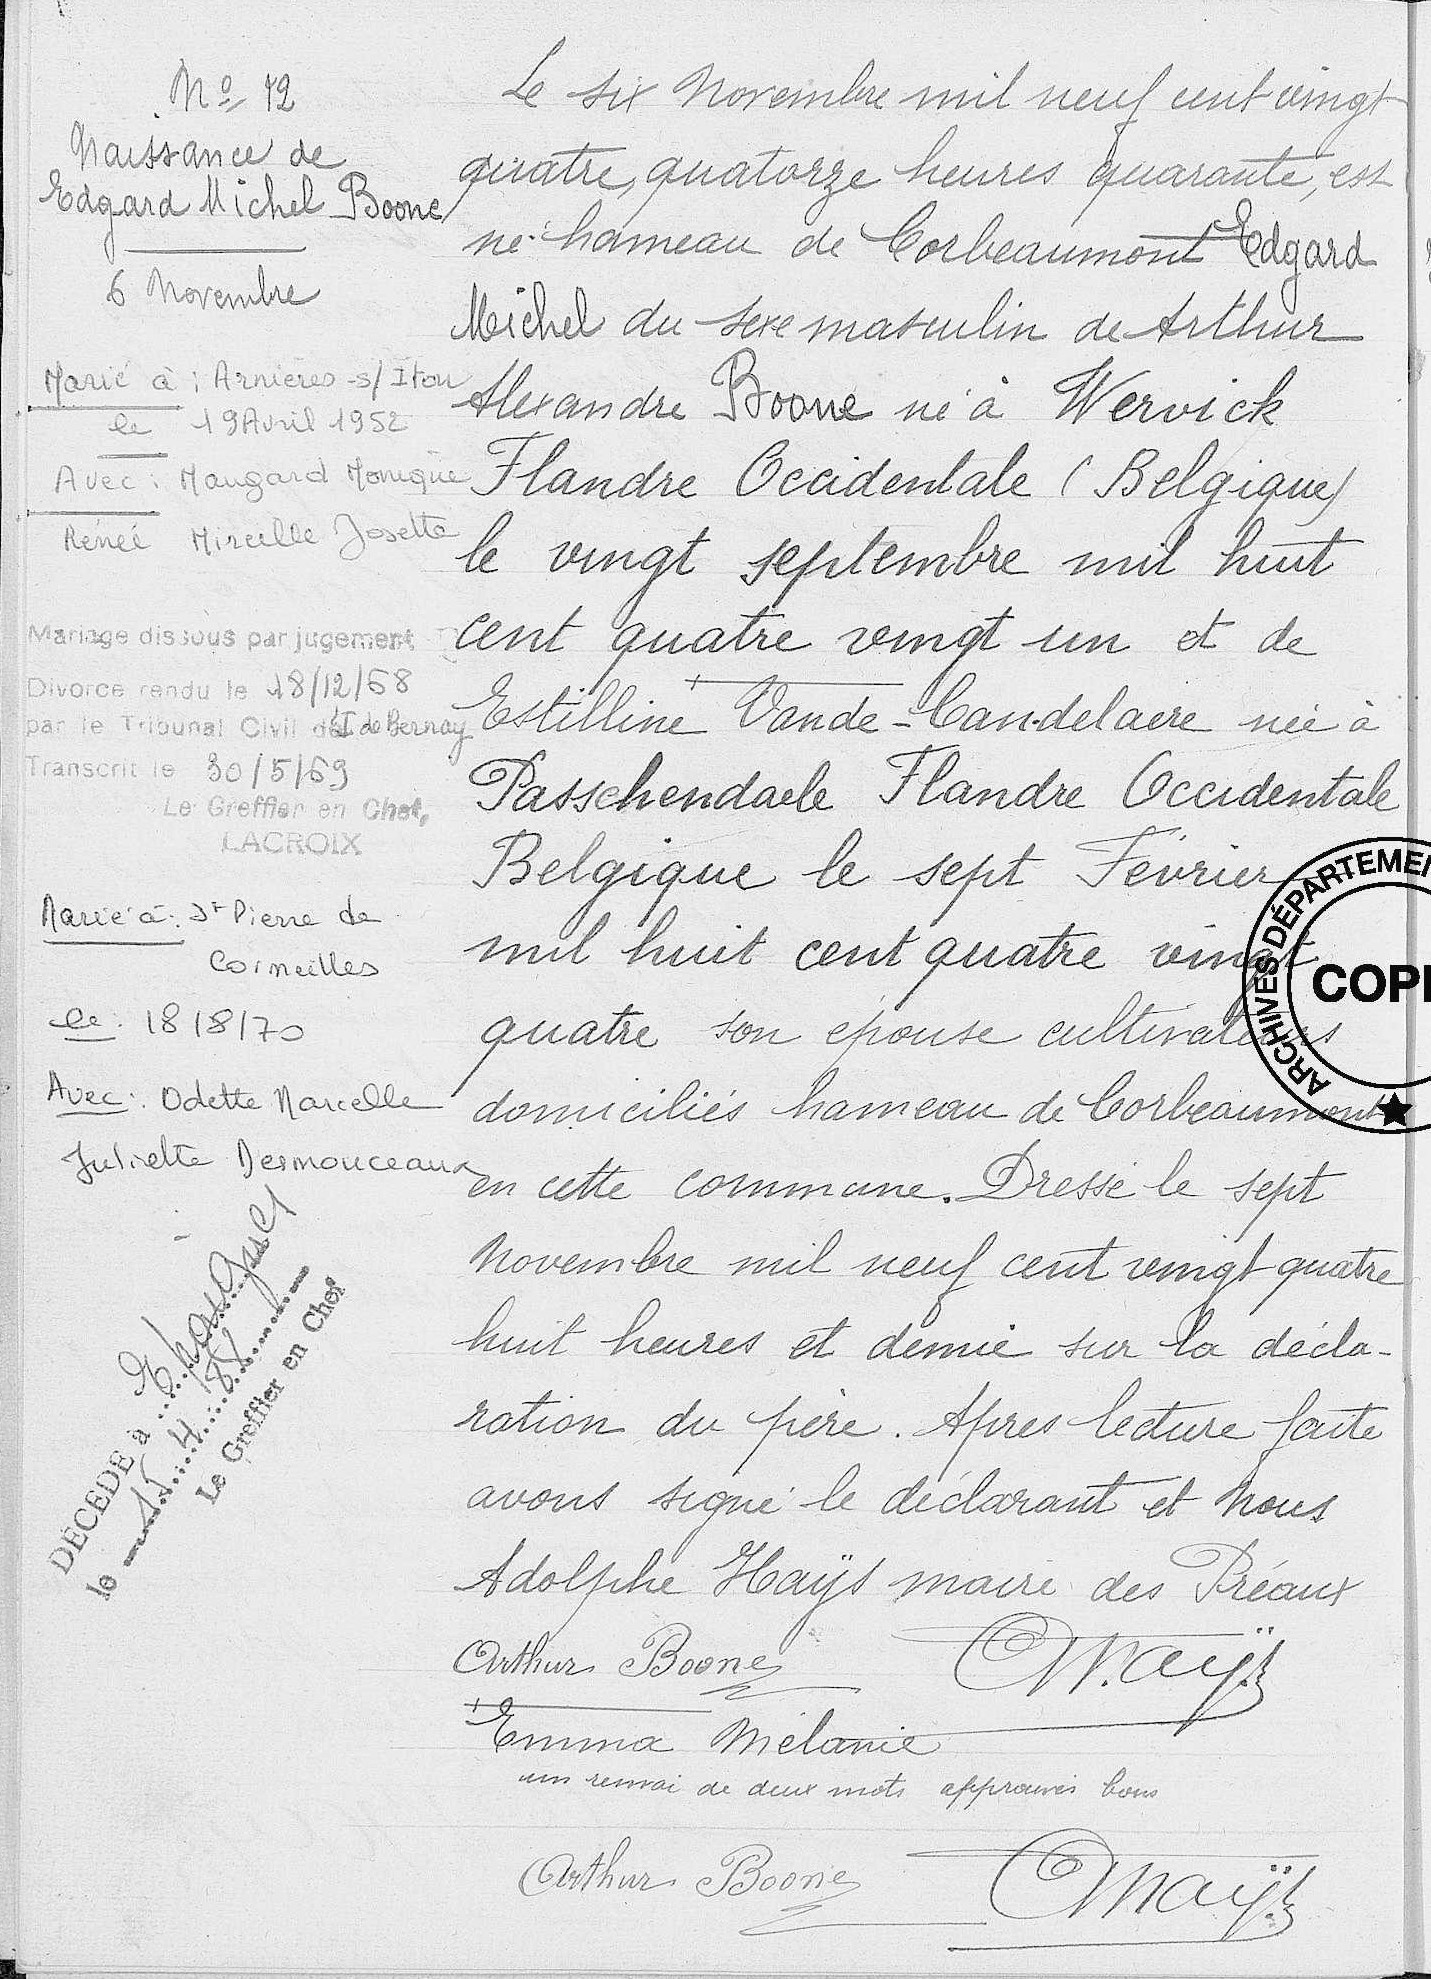 No 12
Naissance de
Edgard Michel Boone
6 Novembre
Marié à : Arnières-s/Iton
le 19 Avril 1952
Avec : Maugard Monique
Renée Mireille Josette
Mariage dissous par jugement
Divorce rendu le 18/12/68
par le Tribunal Civil de Bernay
Transcrit le 30/5/69
Le Greffier en Chef,
LACROIX
Marié à : St Pierre de
Corneilles
le : 18/8/70
Avec : Odette Marcelle
Juliette Desmouceaux
DÉCÉDÉ à
le 15.4.88
Le Greffier en Chef
Le six Novembre mil neuf cent vingt
quatre, quatorze heures quarante, est
né hameau de Corbeaumont Edgard
Michel du sexe masculin de Arthur
Alexandre Boone né à Wervick
Flandre Occidentale (Belgique)
le vingt septembre mil huit
cent quatre vingt un et de
Estilline Vande-Candelaere née à
Passchendaele Flandre Occidentale
Belgique le sept Février
mil huit cent quatre vingt
quatre son épouse cultivateurs
domiciliés hameau de Corbeaumont
en cette commune. Dressé le sept
Novembre mil neuf cent vingt quatre
huit heures et demie sur la décla-
ration du père. Après lecture faite
avons signé le déclarant et Nous
Adolphe Haÿs maire des Préaux
Arthur Boone Haÿs
Emma Mélanie
un renvoi de deux mots approuvés bons
Arthur Boone Haÿs
ARCHIVES DÉPARTEMEN
COPI